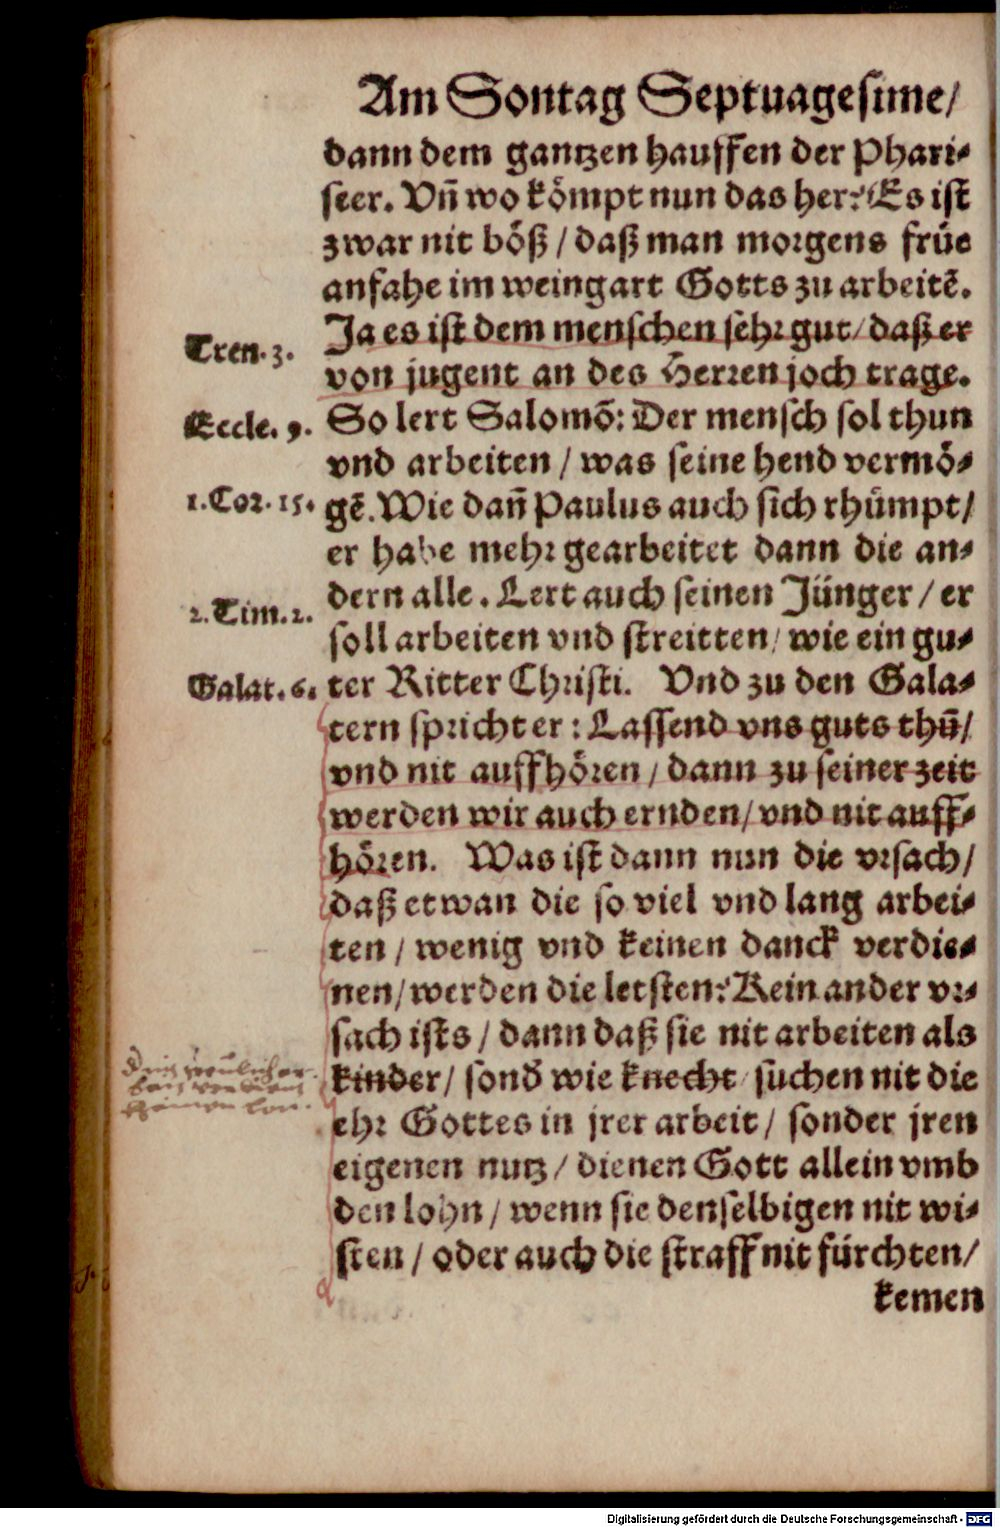 Am Sontag Septuagesime/
dann dem gantzen hauffen der Phari⸗
seer. Vñ wo kömpt nun das her? Es ist
zwar nit böß / daß man morgens früe
anfahe im weingart Gotts zu arbeitē.
Ja es ist dem menschen sehr gut/ daß er
Tren. 3.
von jugent an des Herren joch trage.
Eccle. 9.
So lert Salomō: Der mensch sol thun
vnd arbeiten / was seine hend vermö⸗
1. Cor. 15.
gē. Wie dañ Paulus auch sich rhümpt/
er habe mehr gearbeitet dann die an⸗
dern alle. Lert auch seinen Jünger / er
2. Tim. 2.
soll arbeiten vnd streitten/ wie ein gu⸗
Galat. 6.
ter Ritter Christi. Vnd zu den Gala⸗
tern spricht er : Lassend vns guts thū/
vnd nit auffhören / dann zu seiner zeit
werden wir auch ernden/ vnd nit auff⸗
hören. Was ist dann nun die vrsach/
daß etwan die so viel vnd lang arbei⸗
ten / wenig vnd keinen danck verdie⸗
nen/ werden die letsten? Kein ander vr⸗
sach ists / dann daß sie nit arbeiten als
kinder/ sonđ wie knecht/ suchen nit die
ehr Gottes in jrer arbeit / sonder jren
eigenen nutz / dienen Gott allein vmb
den lohn / wenn sie denselbigen nit wi⸗
sten / oder auch die straff nit fürchten/
kemen
Digitalisierung gefördert durch die Deutsche Forschungsgemeinschaft - DFG